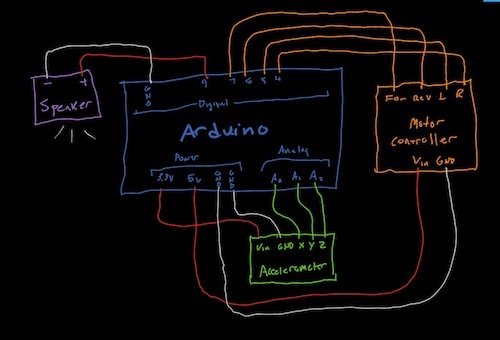 - +
Speaker
GND 9 7 6 5 4
Digital
Arduino
Power Analog
3.3V 5v GND GND A0 A1 A2
For Rev L R
Motor
Controller
Vin GND
Vin GND X Y Z
Accelerometer